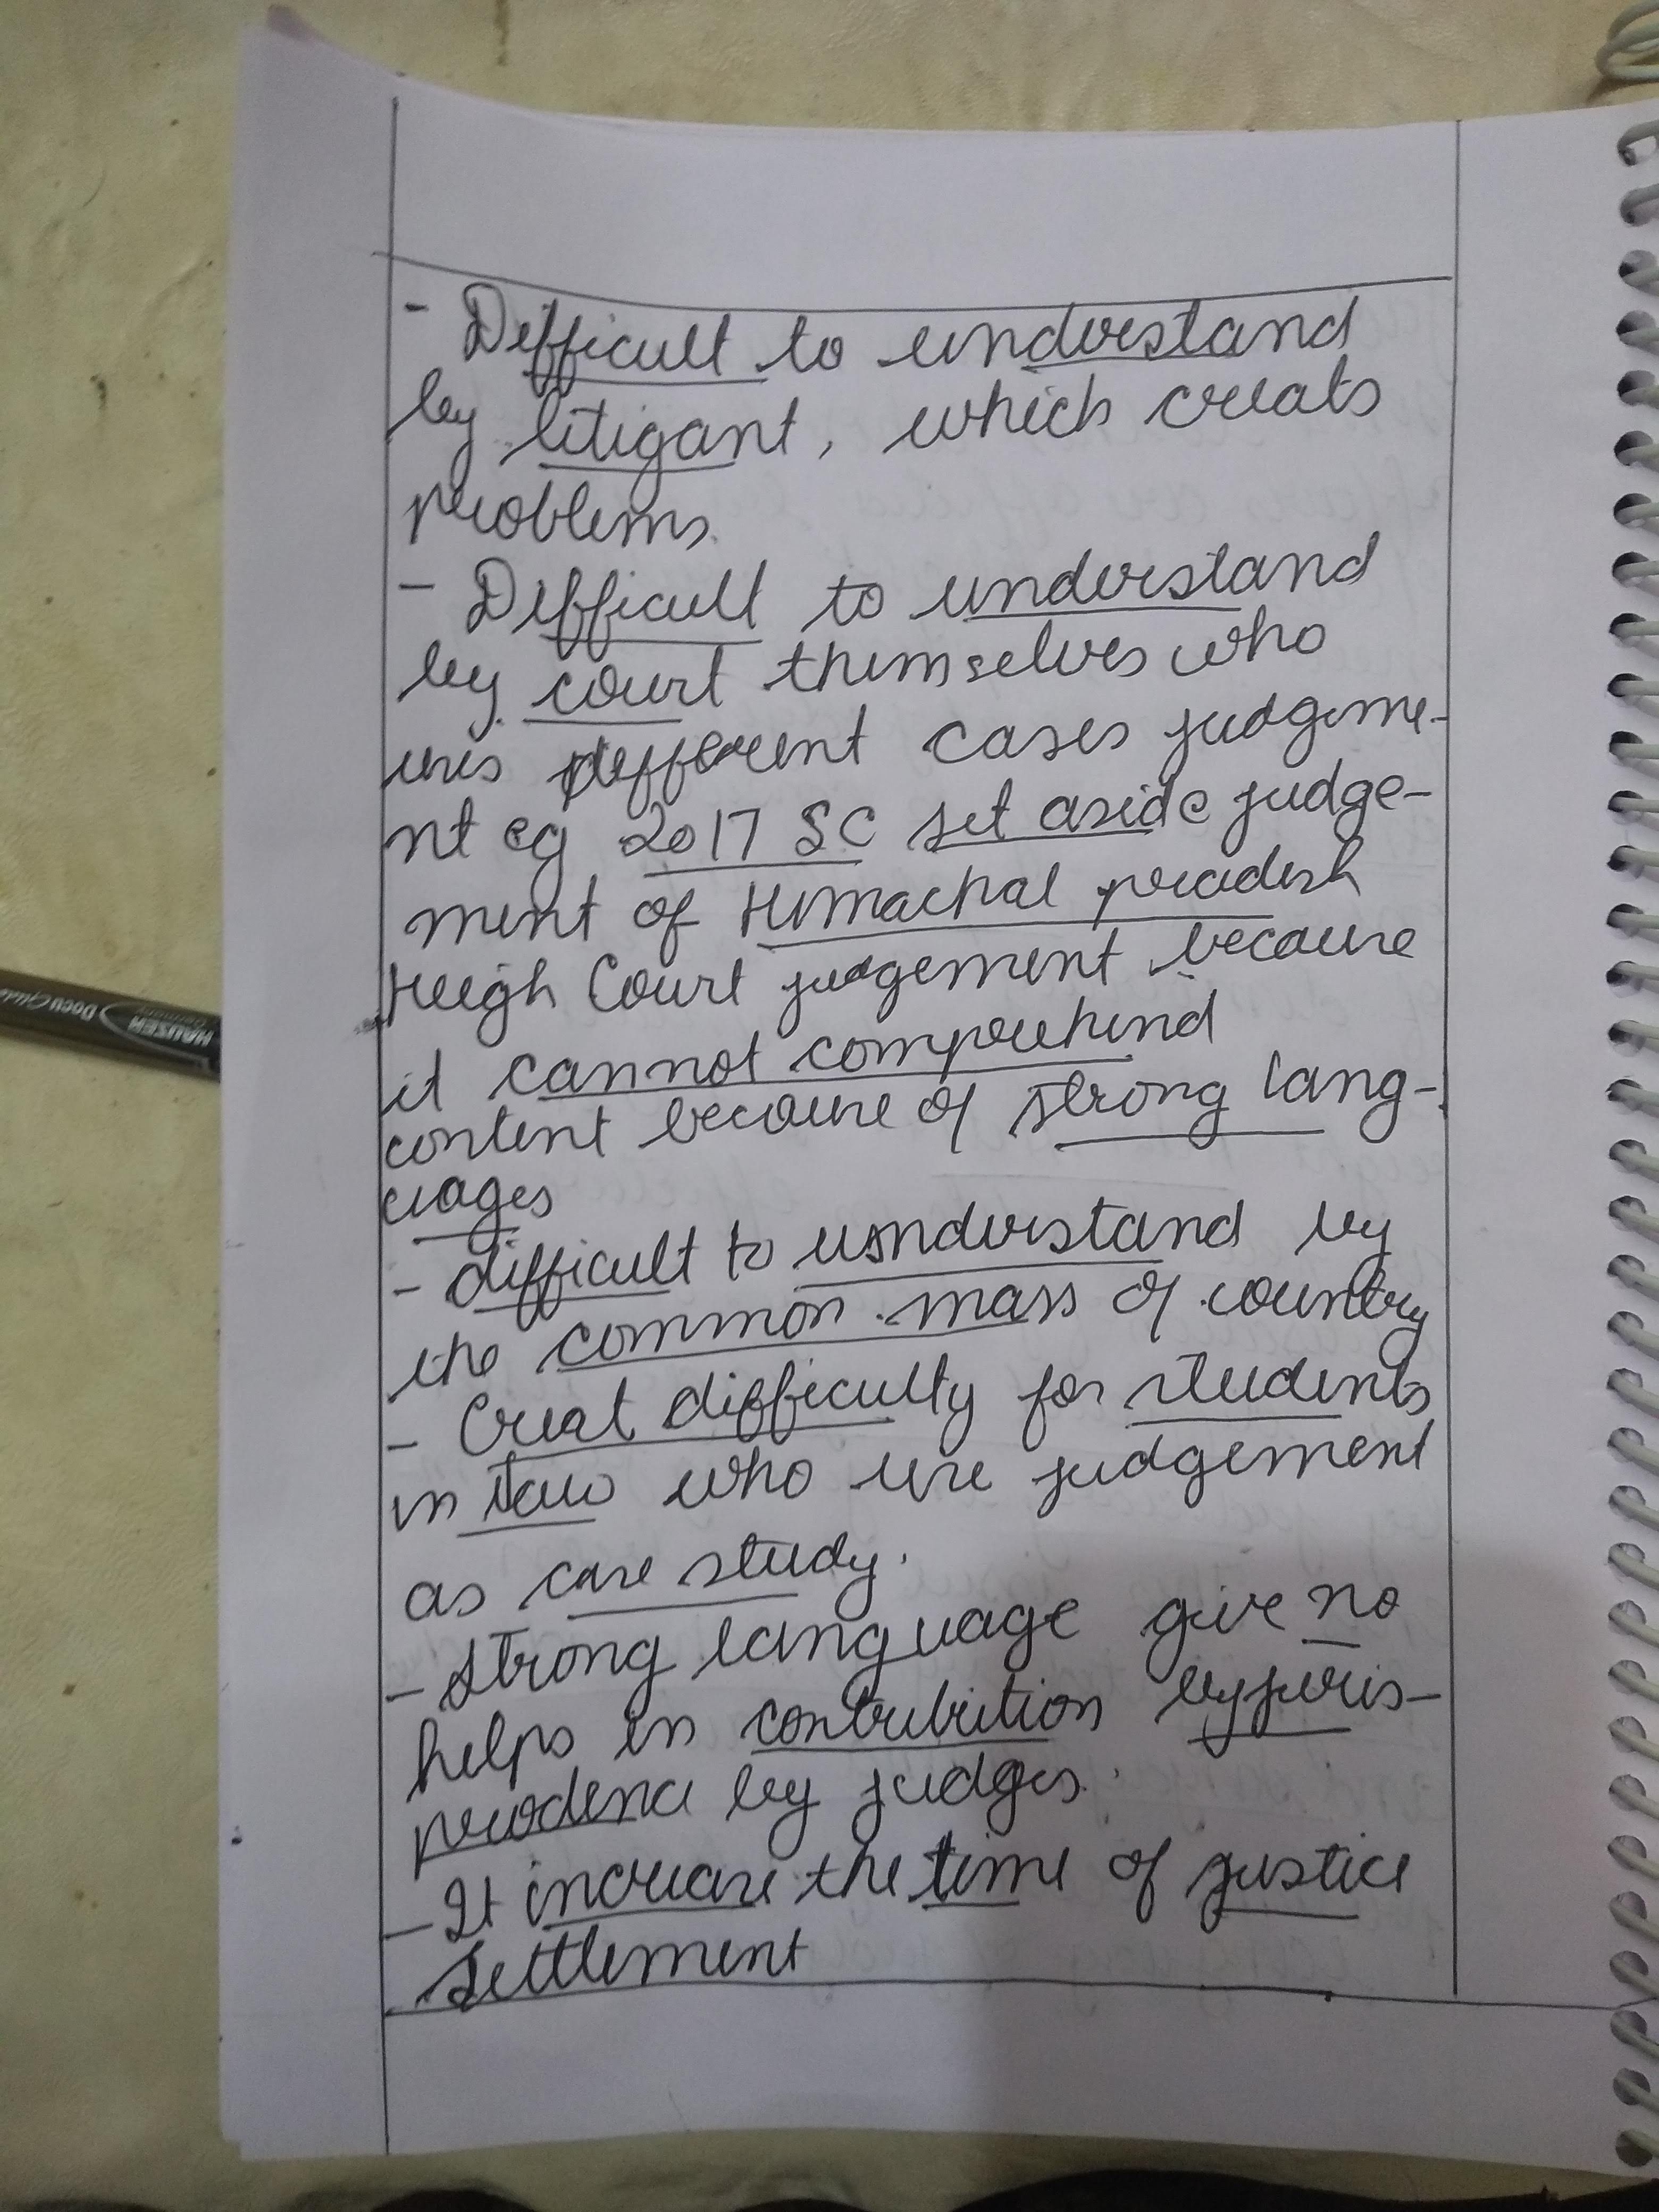 - Difficult to understand
by litigant, which creats
problems.
- Difficult to understand
by court themselves who
uses different cases judgeme-
nt eg 2017 SC set aside judge-
ment of Himachal pradesh
High Court judgement because
it cannot comprehend
content because of strong lang-
uages
- difficult to understand by
the common mass of country
- Creat difficulty for students
in law who use judgement
as case study.
- Strong language give no
helps in contribution by juris-
prudence by judges.
- It increase the time of justice
settlement
HAUSER
Germany
DocuGlide